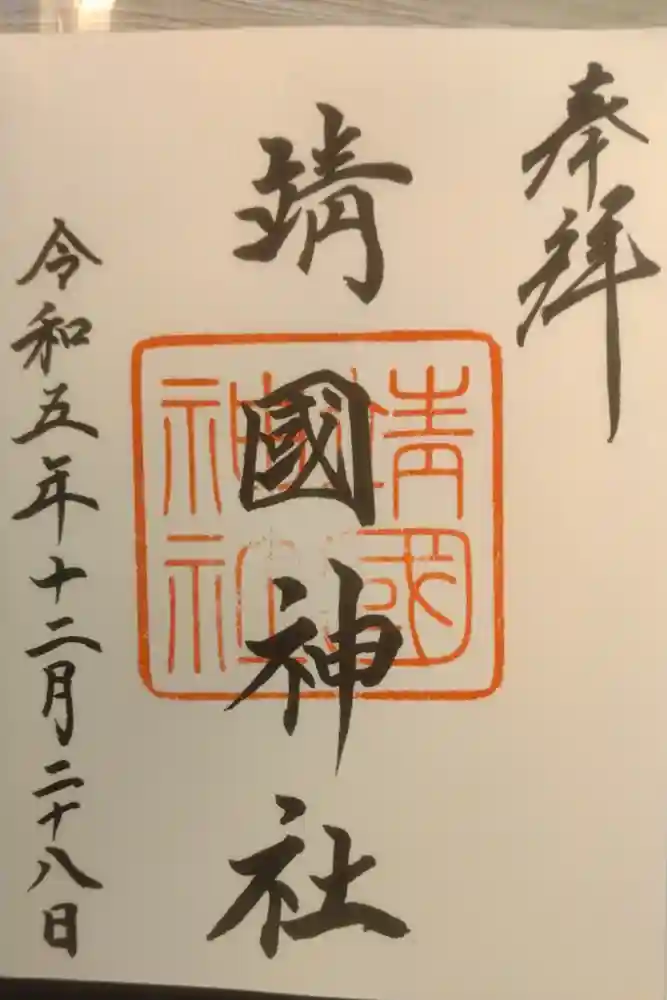 奉拝
靖國神社
靖國神社
令和五年十二月二十八日